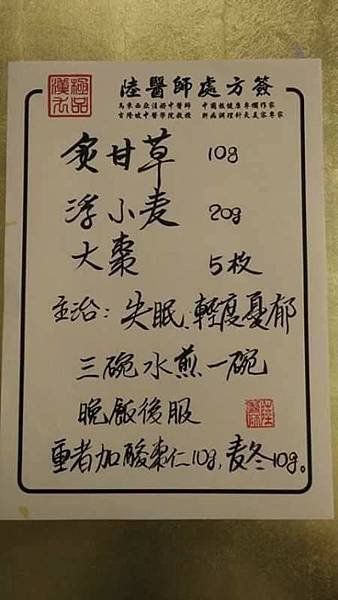 極品
漢方
陸醫師處方簽
馬來西亞註冊中醫師 中國報健康專欄作家
吉隆坡中醫學院教授 針灸美容專家
炙甘草 10g
浮小麦 20g
大棗 5枚
主治：失眠、輕度憂郁
三碗水煎一碗
晚飯後服
重者加酸棗仁10g，麦冬10g。